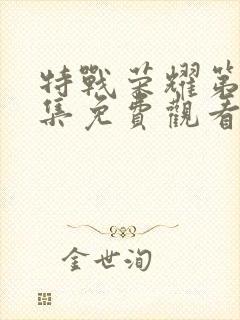 特戰荣耀第
集免費觀看
金世洵